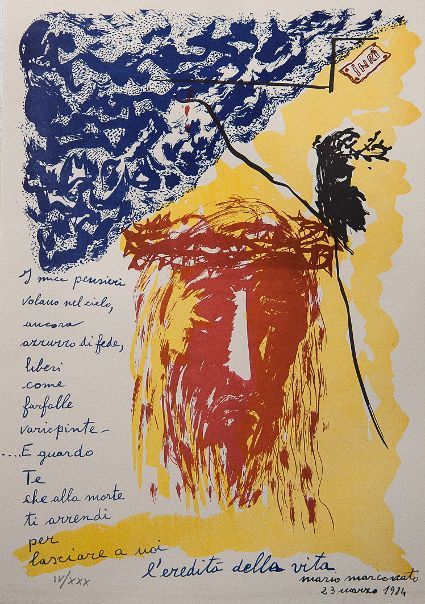 I.N.R.I.
I miei pensieri
volano nel cielo,
ancora
azzurro di fede,
liberi
come
farfalle
variopinte –
....E guardo
Te
che alla morte
ti arrendi
per
lasciare a noi
l'eredità della vita
IV/XXX
mario marcontato
23 marzo 1984